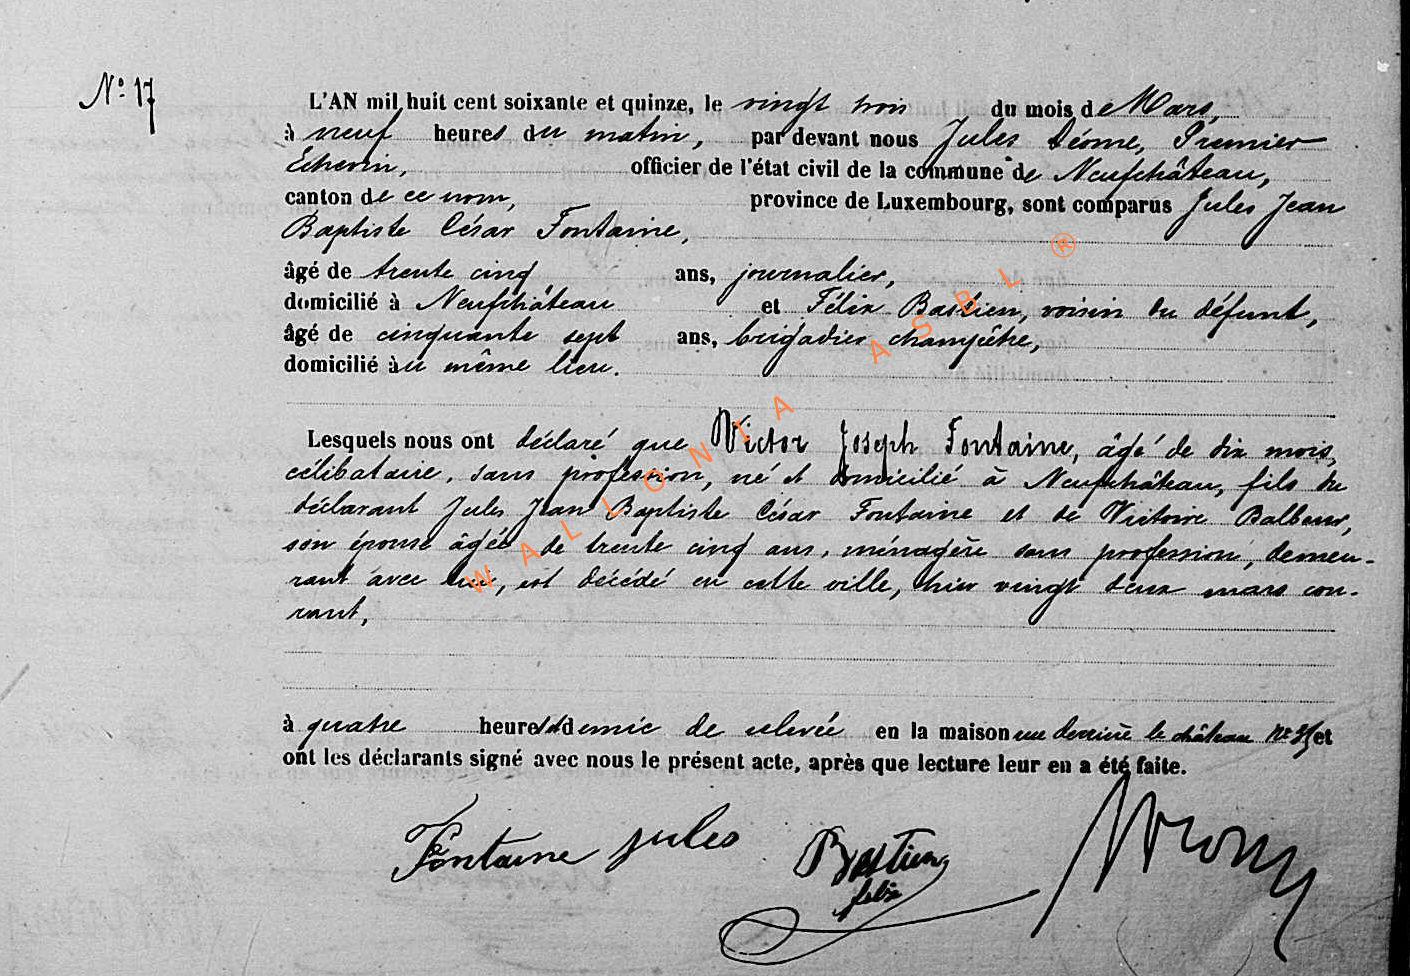 N° 17
L'AN mil huit cent soixante et quinze, le vingt trois du mois de Mars,
à neuf heures du matin, par devant nous Jules Déome, Premier
Echevin, officier de l'état civil de la commune de Neufchâteau,
canton de ce nom, province de Luxembourg, sont comparus Jules Jean
Baptiste César Fontaine,
âgé de trente cinq ans, journalier,
domicilié à Neufchâteau et Félix Bastien, voisin du défunt,
âgé de cinquante sept ans, brigadier champêtre,
domicilié au même lieu.
Lesquels nous ont déclaré que Victor Joseph Fontaine, âgé de dix mois,
célibataire, sans profession, né et domicilié à Neufchâteau, fils du
déclarant Jules Jean Baptiste César Fontaine et de Victoire
son épouse âgée de trente cinq ans, ménagère sans profession, demeu-
rant avec lui, est décédé en cette ville, hier vingt deux mars cou-
rant,
à quatre heures et demie de relevée en la maison rue derrière le château N° et
ont les déclarants signé avec nous le présent acte, après que lecture leur en a été faite.
Fontaine jules Bastien
felix
WALLONIA ASBL ®